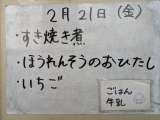 2月21日（金）
・すき焼き煮
・ほうれんそうのおひたし
・いちご
ごはん
牛乳